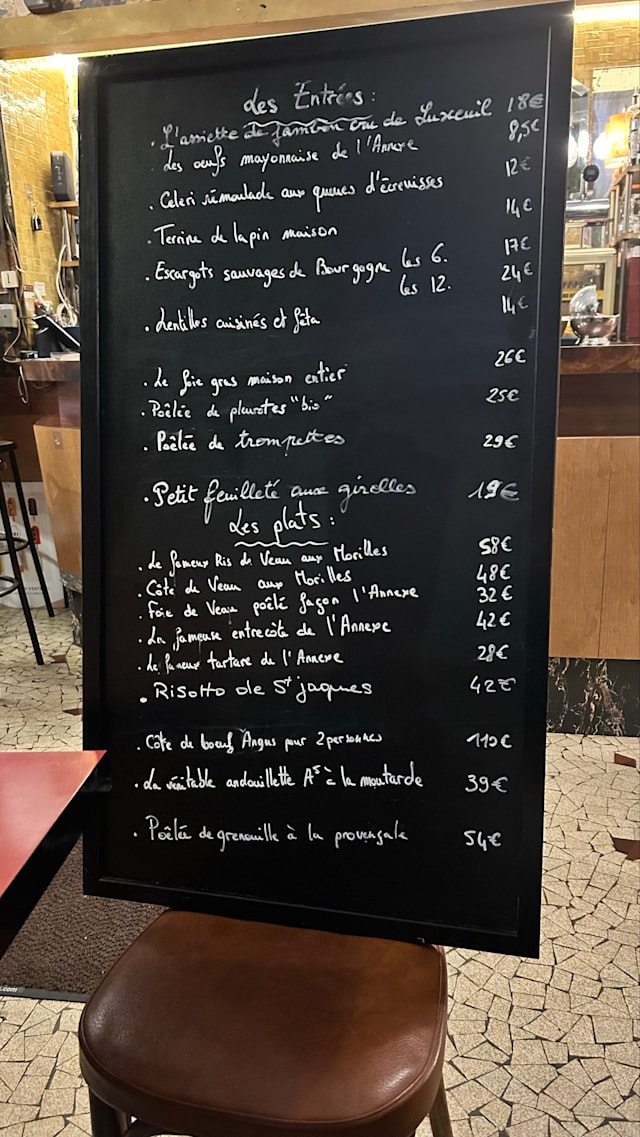 Les Entrées :
. L'assiette de jambon cru de Luxeuil 18€
. Les oeufs mayonnaise de l'Annexe 8,5€
. Celeri rémoulade aux queues d'écrevisses 12€
. Terrine de lapin maison 14€
. Escargots sauvages de Bourgogne les 6. 17€
les 12. 24€
. Lentilles cuisinés et fêta 14€
. Le foie gras maison entier 26€
. Poêlée de pleurotes "bio" 25€
. Poêlée de trompettes 29€
. Petit feuilleté aux girolles 19€
Les plats :
. Le fameux Ris de Veau aux Morilles 58€
. Côte de Veau aux Morilles 48€
. Foie de Veau poêlé façon l'Annexe 32€
. La fameuse entrecôte de l'Annexe 42€
. Le fameux tartare de l'Annexe 28€
. Risotto de St jaques 42€
. Côte de boeuf Angus pour 2 personnes 110€
. La véritable andouillette A5 à la moutarde 39€
. Poêlée de grenouille à la provençale 54€
.com